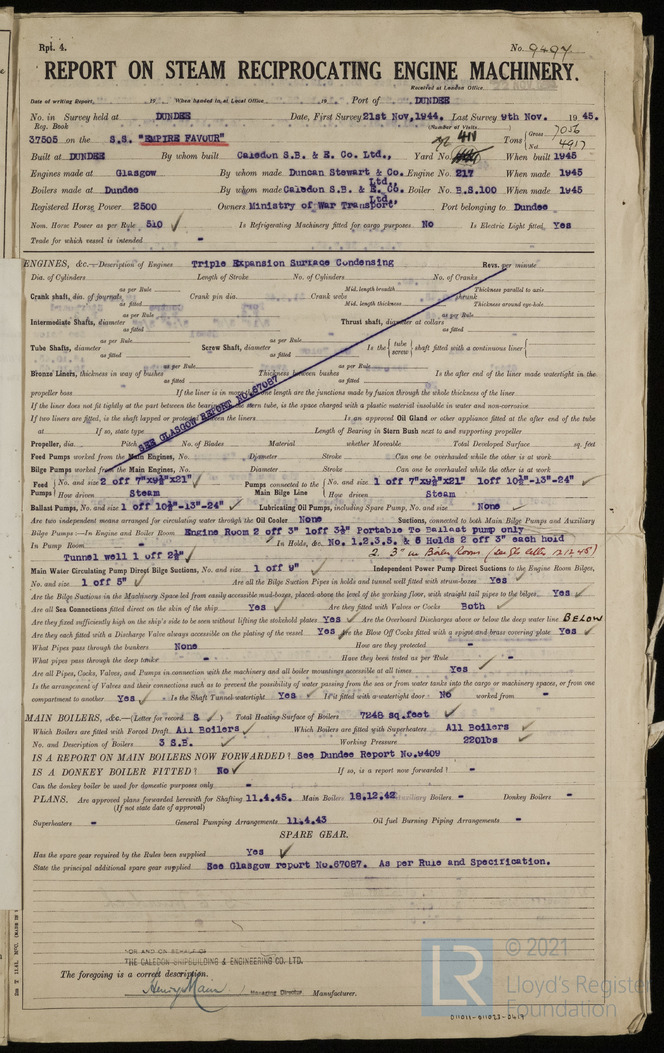 Rpt. 4.
No. 9497
REPORT ON STEAM RECIPROCATING ENGINE MACHINERY.
Received at London Office
Date of writing Report, 19 When handed in at Local Office 19 Port of DUNDEE
No. in Survey held at DUNDEE Date, First Survey 21st Nov, 1944. Last Survey 9th Nov. 1945.
Reg. Book (Number of Visits 411
37505 on the S.S. "EMPIRE FAVOUR" Tons Gross 7056
Net 4917
Built at DUNDEE By whom built Caledon S.B. & E. Co. Ltd., Yard No. When built 1945
Engines made at Glasgow By whom made Duncan Stewart & Co. Ltd., Engine No. 217 When made 1945
Boilers made at Dundee By whom made Caledon S.B. & E. Co. Ltd., Boiler No. B.S.100 When made 1945
Registered Horse Power 2500 Owners Ministry of War Transport, Port belonging to Dundee
Nom. Horse Power as per Rule 510 Is Refrigerating Machinery fitted for cargo purposes No Is Electric Light fitted Yes
Trade for which vessel is intended -
ENGINES, &c.—Description of Engines Triple Expansion Surface Condensing Revs. per minute
Dia. of Cylinders Length of Stroke No. of Cylinders No. of Cranks
Crank shaft, dia. of journals as per Rule as fitted Crank pin dia. Crank webs Mid. length breadth Mid. length thickness shrunk Thickness parallel to axis Thickness around eye-hole
Intermediate Shafts, diameter as per Rule as fitted Thrust shaft, diameter at collars as per Rule as fitted
Tube Shafts, diameter as per Rule as fitted Screw Shaft, diameter as per Rule as fitted Is the {tube screw} shaft fitted with a continuous liner
Bronze Liners, thickness in way of bushes as per Rule as fitted Thickness between bushes as per Rule as fitted Is the after end of the liner made watertight in the
propeller boss If the liner is in more than one length are the junctions made by fusion through the whole thickness of the liner
If the liner does not fit tightly at the part between the bearings in the stern tube, is the space charged with a plastic material insoluble in water and non-corrosive
If two liners are fitted, is the shaft lapped or protected between the liners Is an approved Oil Gland or other appliance fitted at the after end of the tube
SEE GLASGOW REPORT NO.67087
at If so, state type Length of Bearing in Stern Bush next to and supporting propeller
Propeller, dia. Pitch No. of Blades Material whether Moveable Total Developed Surface sq. feet
Feed Pumps worked from the Main Engines, No. Diameter Stroke Can one be overhauled while the other is at work
Bilge Pumps worked from the Main Engines, No. Diameter Stroke Can one be overhauled while the other is at work
Feed Pumps {No. and size 2 off 7"x9½"x21" Pumps connected to the Main Bilge Line {No. and size 1 off 7"x9½"x21" 1off 10½"-13"-24"
How driven Steam How driven Steam
Ballast Pumps, No. and size 1 off 10½"-13"-24" Lubricating Oil Pumps, including Spare Pump, No. and size None
Are two independent means arranged for circulating water through the Oil Cooler None Suctions, connected to both Main Bilge Pumps and Auxiliary
Bilge Pumps :—In Engine and Boiler Room Engine Room 2 off 3" 1off 3½" Portable To Ballast pump only
In Pump Room - In Holds, &c. No. 1,2,3,5, & 6 Holds 2 off 3" each hold
Tunnel well 1 off 2½" 2. 3" in Boiler Room
Main Water Circulating Pump Direct Bilge Suctions, No. and size 1 off 9" Independent Power Pump Direct Suctions to the Engine Room Bilges,
No. and size 1 off 5" Are all the Bilge Suction Pipes in holds and tunnel well fitted with strum-boxes Yes
Are the Bilge Suctions in the Machinery Space led from easily accessible mud-boxes, placed above the level of the working floor, with straight tail pipes to the bilges Yes
Are all Sea Connections fitted direct on the skin of the ship Yes Are they fitted with Valves or Cocks Both
Are they fixed sufficiently high on the ship's side to be seen without lifting the stokehold plates Yes Are the Overboard Discharges above or below the deep water line BELOW
Are they each fitted with a Discharge Valve always accessible on the plating of the vessel Yes Are the Blow Off Cocks fitted with a spigot and brass covering plate Yes
What Pipes pass through the bunkers None How are they protected -
What pipes pass through the deep tanks - Have they been tested as per Rule -
Are all Pipes, Cocks, Valves, and Pumps in connection with the machinery and all boiler mountings accessible at all times Yes
Is the arrangement of Valves and their connections such as to prevent the possibility of water passing from the sea or from water tanks into the cargo or machinery spaces, or from one
compartment to another Yes Is the Shaft Tunnel watertight Yes Is it fitted with a watertight door No worked from -
MAIN BOILERS, &c.—(Letter for record S) Total Heating Surface of Boilers 7248 sq.feet
Which Boilers are fitted with Forced Draft All Boilers Which Boilers are fitted with Superheaters All Boilers
No. and Description of Boilers 3 S.B. Working Pressure 220lbs
IS A REPORT ON MAIN BOILERS NOW FORWARDED? See Dundee Report No.9409
IS A DONKEY BOILER FITTED? No If so, is a report now forwarded? -
Can the donkey boiler be used for domestic purposes only -
PLANS. Are approved plans forwarded herewith for Shafting 11.4.45. Main Boilers 18.12.42 Auxiliary Boilers - Donkey Boilers -
(If not state date of approval)
Superheaters - General Pumping Arrangements 11.4.43 Oil fuel Burning Piping Arrangements -
SPARE GEAR.
Has the spare gear required by the Rules been supplied Yes
State the principal additional spare gear supplied See Glasgow report No.67087. As per Rule and Specification.
FOR AND ON BEHALF OF
THE CALEDON SHIPBUILDING & ENGINEERING CO. LTD.
The foregoing is a correct description.
Henry Main Managing Director Manufacturer.
© 2021
LR
Lloyd's Register
Foundation
011011-011023-0214